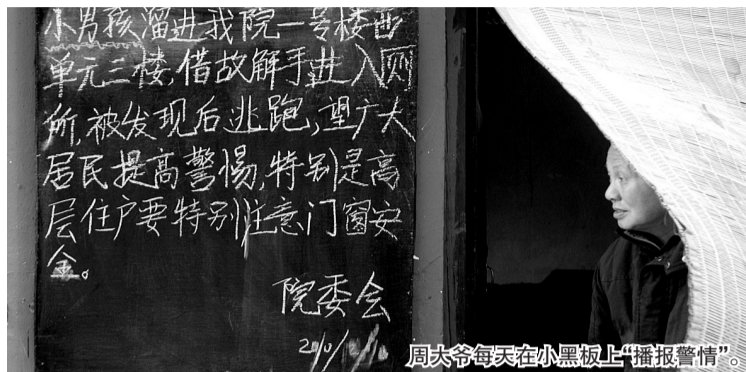 小男孩溜进我院一号楼西
单元三楼,借故解手进入厕
所,被发现后逃跑,望广大
居民提高警惕,特别是高
层住户要特别注意门窗安
全。
院委会
周大爷每天在小黑板上“播报警情”。